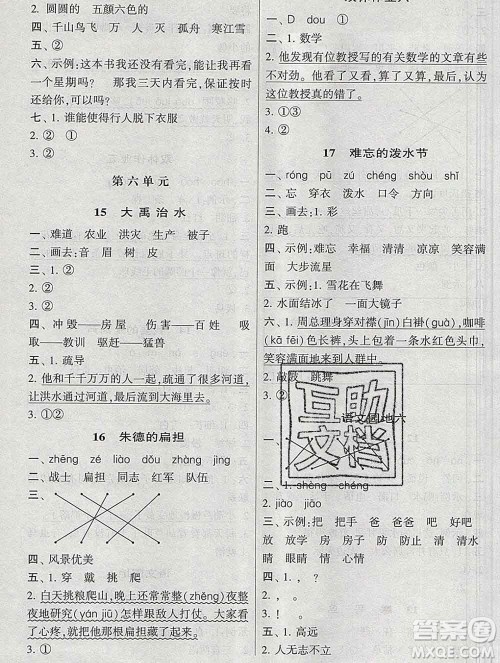 2. 圆圆的 五颜六色的
四、千山鸟飞 万 人 灭 孤舟 寒江雪
五、②
六、示例：这本书我还没有看完，能再借我看一个星期吗？ 那我三天内看完，保证按时还给你，可以吗？
七、1. 谁能使得行人脱下衣服
2. ② ①
3. ②
第六单元
15 大禹治水
一、难道 农业 洪灾 生产 被子
二、画去：音 眉 树 皮
三、①
②
四、冲毁——房屋 伤害——百姓 吸取——教训 驱赶——猛兽
五、1. 疏导
2. 他和千千万万的人一起，疏通了很多河道，让洪水通过河道，最后流到大海里去。
3. ②
16 朱德的扁担
一、zhēng zé liào dǒu zhàng jìng
二、战士 扁担 同志 红军 队伍
三、
四、风景优美
五、1. 穿 戴 挑 爬
2. 白天挑粮爬山，晚上还常常整(zhěng)夜整夜地研究(yán jiū)怎样跟敌人打仗。大家看了心疼，就把他那根扁担藏了起来。
3. ①
一、D dou ① ③
二、①
三、1. 数学
2. 他发现有位教授写的有关数学的文章有些不对劲。他看了又看，算了又算，最后，认为这位教授真的错了。
3. ①③
17 难忘的泼水节
一、róng pū zú chéng shòu shǐ
二、忘 穿衣 泼水 口令 方向
三、画去：1. 彩
2. 跑
四、示例：难忘 幸福 清清 凉凉 笑容满面 大步流星
五、示例：1. 雪花在飞舞
2. 水面结冰了 一面大镜子
六、1. 周总理身穿对襟(jīn)白褂(guà)，咖啡(kā fēi)色长裤，头上包着一条水红色头巾，笑容满面地来到人群中。
2. 敲鼓 跳舞
3. ②
语文园地六
一、
二、1. shèng chéng
2. jiào jiāo
三、示例：把 把手 爸 爸爸 吧 好吧
放 放学 房 房子 防 防止 清 清水
睛 眼睛 情 心情
四、1. ， 。
2. ， 。
五、1. 高远
2. 人无志不立
答案圈
MXQE.COM
互助文档